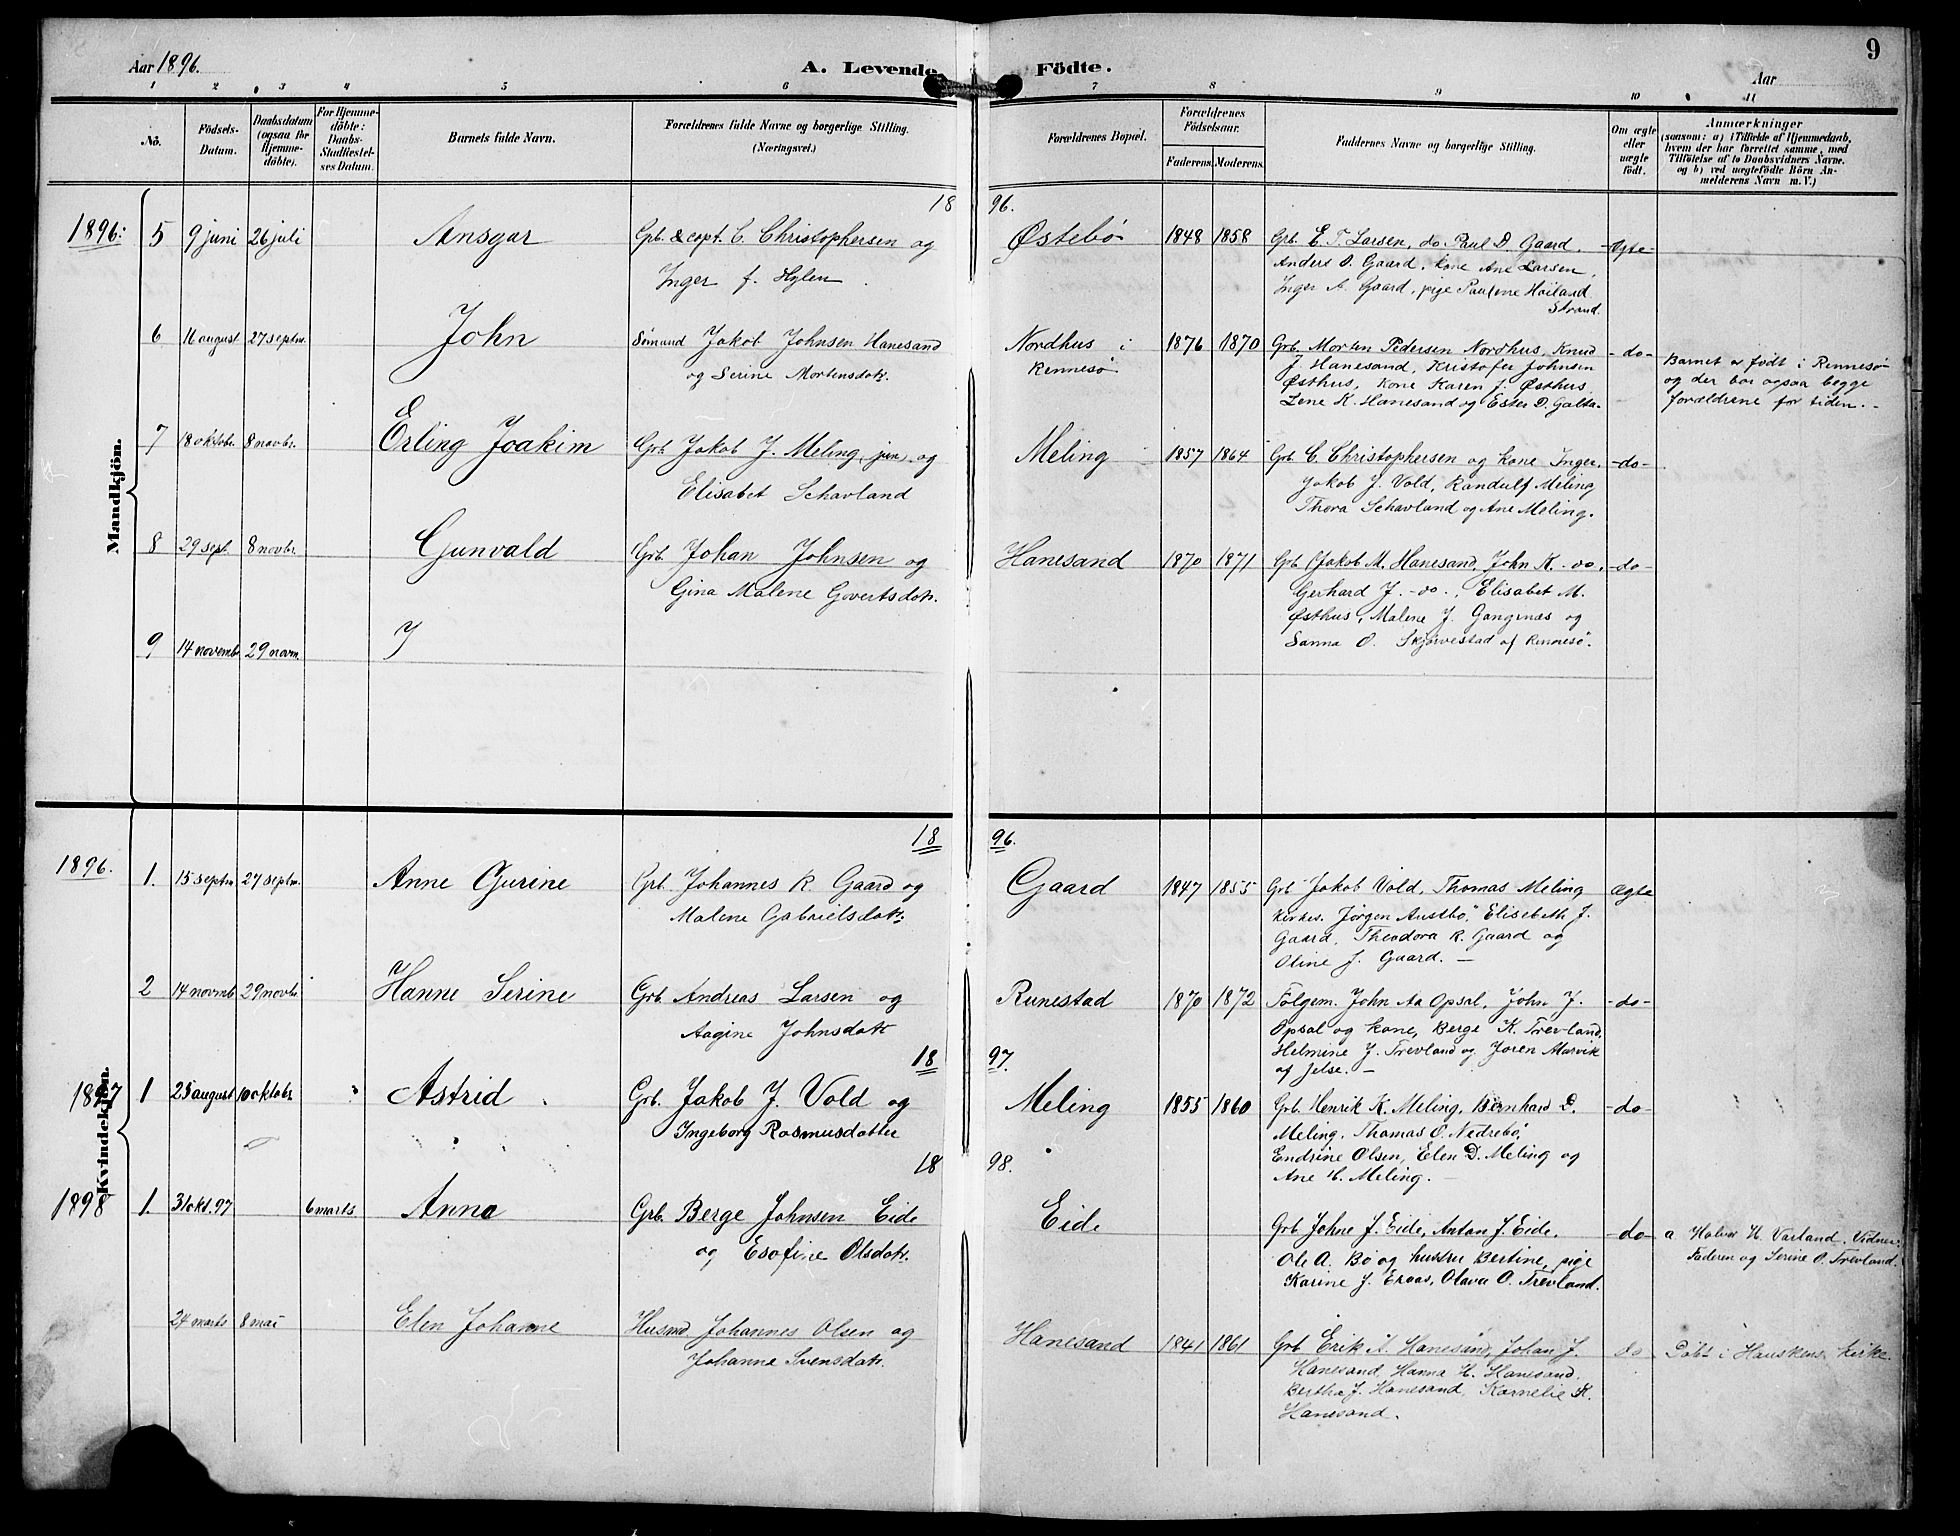 Aar 1896.
A. Levende Födte.
Aar
9
1 2 3 4 5 6 7 8 9 10 11
No.
Födsels-Datum.
Daabsdatum (ogsaa for Hjemme-döbte).
For Hjemme-döbte: Daabs-Stadfæstel-ses Datum.
Barnets fulde Navn.
Forældrenes fulde Navne og borgerlige Stilling. (Næringsvei.)
Forældrenes Bopæl.
Forældrenes Födselsaar.
Faderens. Moderens.
Faddernes Navne og borgerlige Stilling.
Om ægte eller uægte födt.
Anmærkninger
(saasom: a) i Tilfælde af Hjemmedaab,
hvem der har forrettet samme, med
Tilföielse af to Daabsvidners Navne.
og b) ved uægtefödte Börn An-
melderens Navn m. V.)
Mandkjön.
18 96.
1896: 5 9 juni 26 juli Ansgar Gb. & capt. C. Christophersen og Østebø 1848 1858 Grb. E. T. Larsen, do. Paul D. Gaard. -Ægte-
Inger f. Hylen. Anders O. Gaard, kone Ane Larsen,
Inger A. Gaard, pige Pauline Høiland
Strand.
6 16 august 27 septm. John Sømand Jakob Johnsen Hanesand Nordhus i 1876 1870 Grb. Morten Pedersen Nordhus, Knud -do- Barnet er født i Rennesø
og Serine Mortensdatr. Rennesø J. Hanesand, Kristofer Johnsen og der bor ogsaa begge
Østhus, Kone Karen J. Østhus forældrene for tiden. -
Lene K. Hanesand og Ester D. Galta.
7 18 oktobr. 8 novbr. Erling Joakim Grb. Jakob J. Meling, jun. og Meling 1857 1864 Grb. C. Christophersen og kone Inger. -do-
Elisabet Schavland Jakob J. Vold, Randulf Meling
Thora Schavland og Ane Meling.
8 29 sept. 8 novbr. Gunvald Grb. Johan Johnsen og Hanesand 1870 1871 Grb. Jakob M. Hanesand, John K. -do. -do-
Gina Malene Govertsdatr. Gerhard J. -do., Elisabet M.
Østhus, Malene J. Gangenæs og
Sanna O. Skjørvestad af Rennesö.
9 14 novembr 29 novm.
Kvindekjön.
18 96.
1896. 1. 15 septm 27 septm. Anne Gurine Grb. Johannes R. Gaard og Gaard 1847 1855 Grb. Jakob Vold, Thomas Meling ægte
Malene Gabrielsdatr. Kirkes. Jørgen Austbö, Elisabeth J.
Gaard, Theodora R. Gaard og
Oline J. Gaard. -
2 14 novmb 29 novbr Hanne Serine Grb. Andreas Larsen og Runestad 1870 1872 Følgem. John Aa Opsal, John J. -do-
Aagine Johnsdatr Opsal og kone, Berge K. Trevland,
Helmine J. Trevland og Joren Marvik
af Jelse. -
18 97.
1897 1 25 august 10 oktobr. Astrid Grb. Jakob J. Vold og Meling 1855 1860 Grb. Henrik K. Meling, Bernhard D. -do-
Ingeborg Rasmusdatter Meling. Thomas O. Nedrebö,
Endrine Olsen, Elen D. Meling og
Ane H. Meling. -
18 98.
1898 1. 31 okt. 97 6 marts. Anna Grb. Berge Johnsen Eide Eide Grb. Johne J. Eide, Anton J. Eide. -do- a Halvor H. Varland. Vidner.
og Esofine Olsdatr. Ole A. Bø og hustru Bertine, pige Faderen og Serine O. Trevland.
Karine J. Eraas, Olava O. Trevland.
24 marts 8 mai Elen Johanne Husmd Johannes Olsen og Hanesand 1841 1861 Grb Erik A. Hanesand, Johan J. do Døbt i Hauskens kirke.
Johanne Svensdatr. Hanesand, Hanna H. Hanesand.
Bertha J. Hanesand, Kornelie K.
Hanesand.